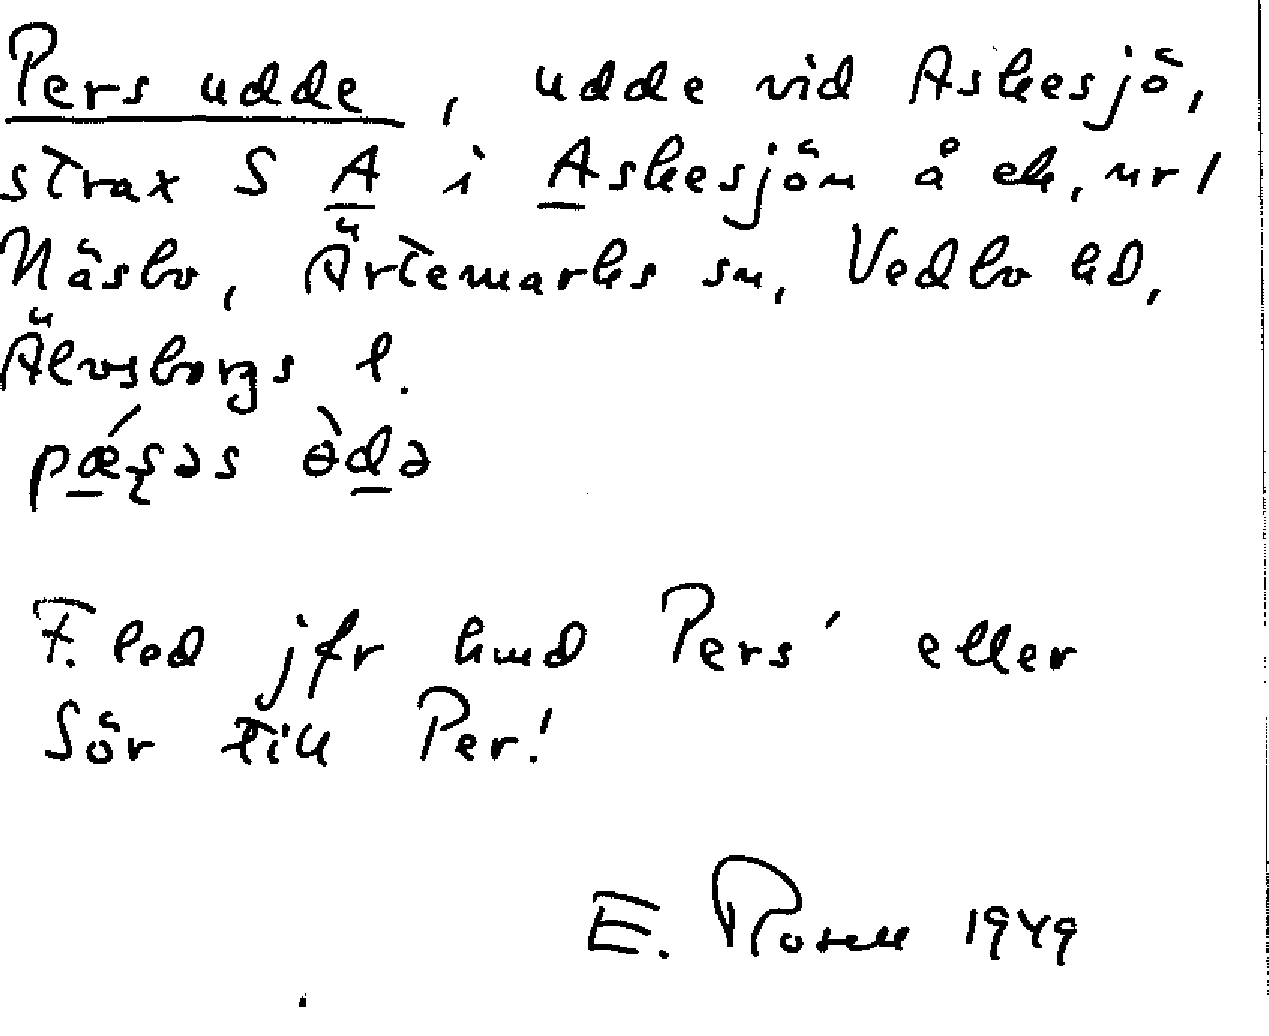 Pers udde, udde vid Askesjö,
strax S A i Askesjön å ek, nr 1
Näsbo, Ärtemarks sn, Vedbo hd,
Älvsborgs l.
F. led jfr hmd Pers' eller
Sör till Per!
E. Rosell 1949